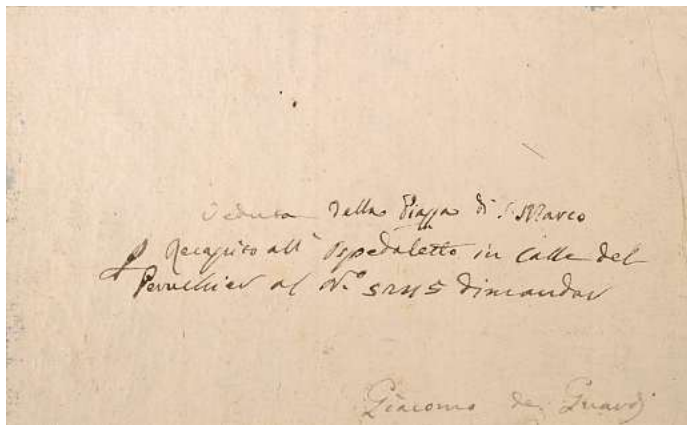 Veduta della Piazza di S. Marco
Recapito all' Ospedaletto in Calle del
Peruchier al N.º 5245 dimandar
Giacomo de Guardi